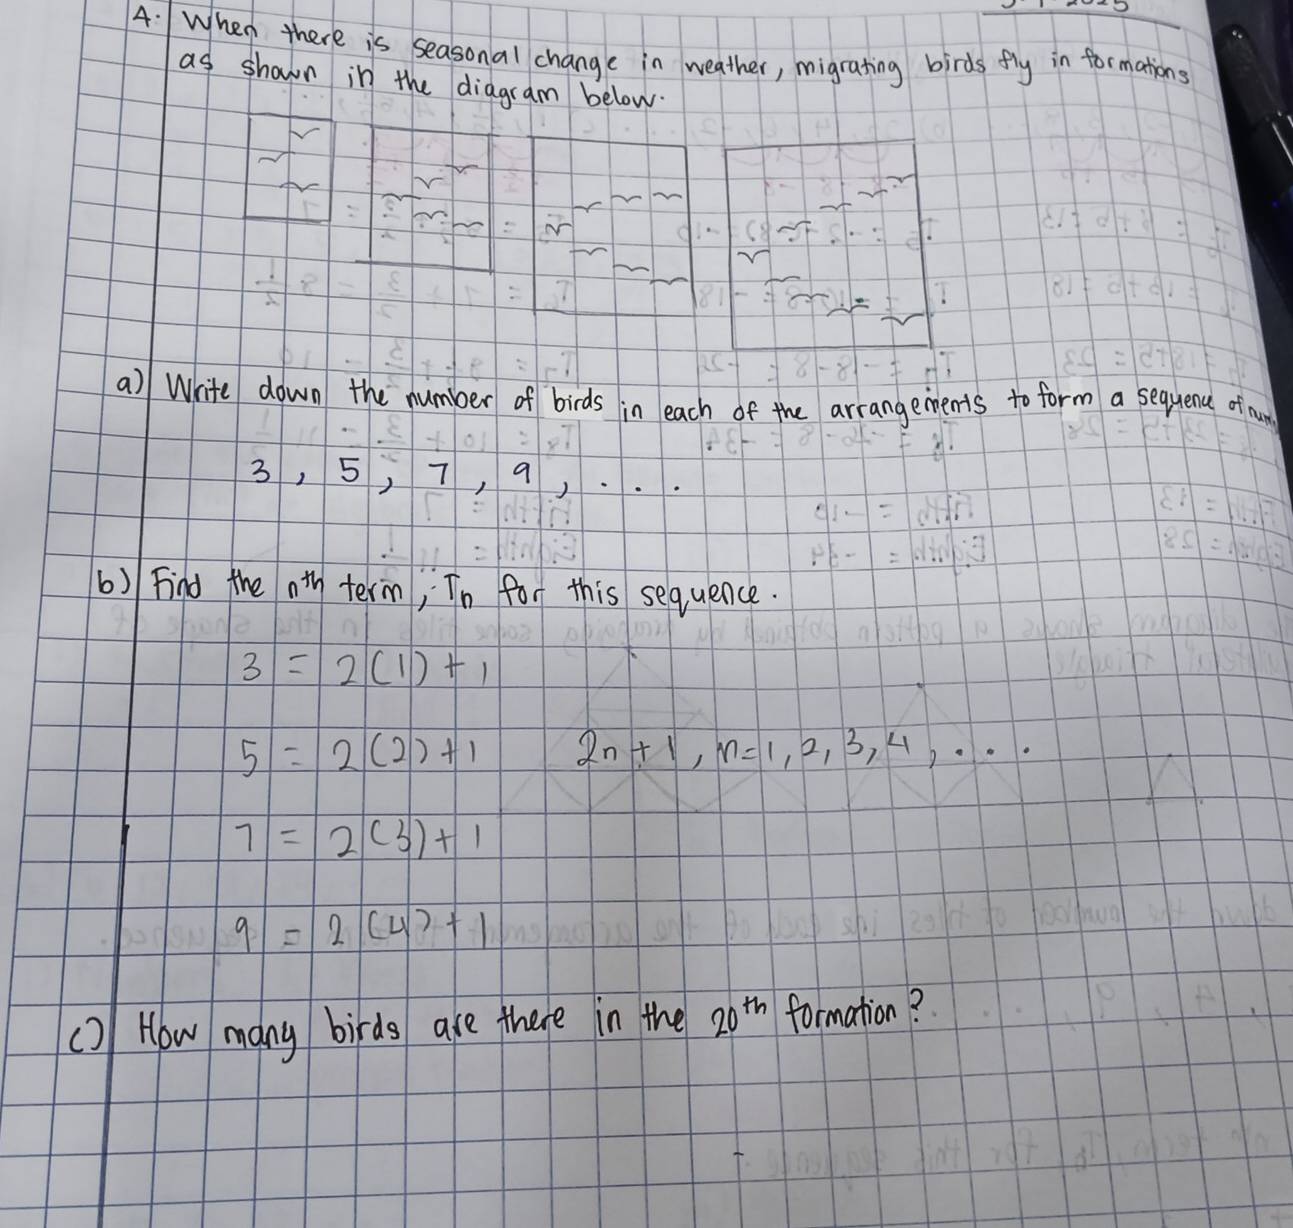 4. When there is seasonal change in weather, migrating birds fly in formations
as shown in the diagram below.
a) Write down the number of birds in each of the arrangements to form a sequence of
3, 5, 7, 9, ...
b) Find the nth term, Tn for this sequence.
3 = 2(1)+1
5 = 2(2)+1 2n+1, n=1,2,3,4,...
7 = 2(3)+1
9 = 2(4)+1
c) How many birds are there in the 20th formation?